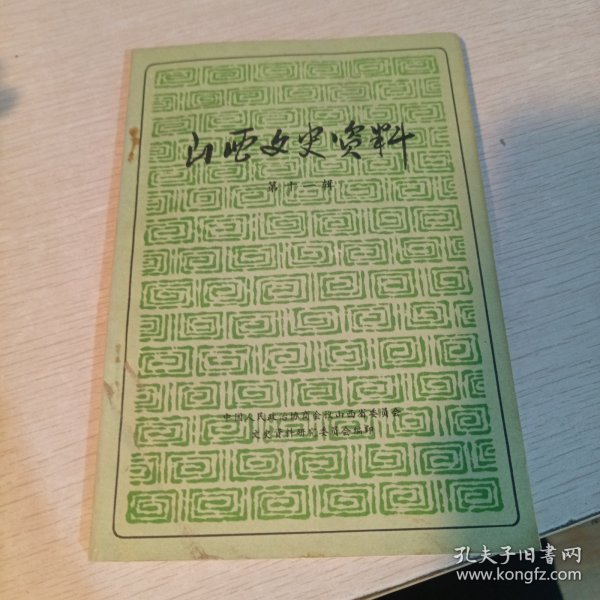 山西文史资料
第十一辑
中国人民政治协商会议山西省委员会
文史资料研究委员会编印
孔夫子旧書网
www.kongfz.com